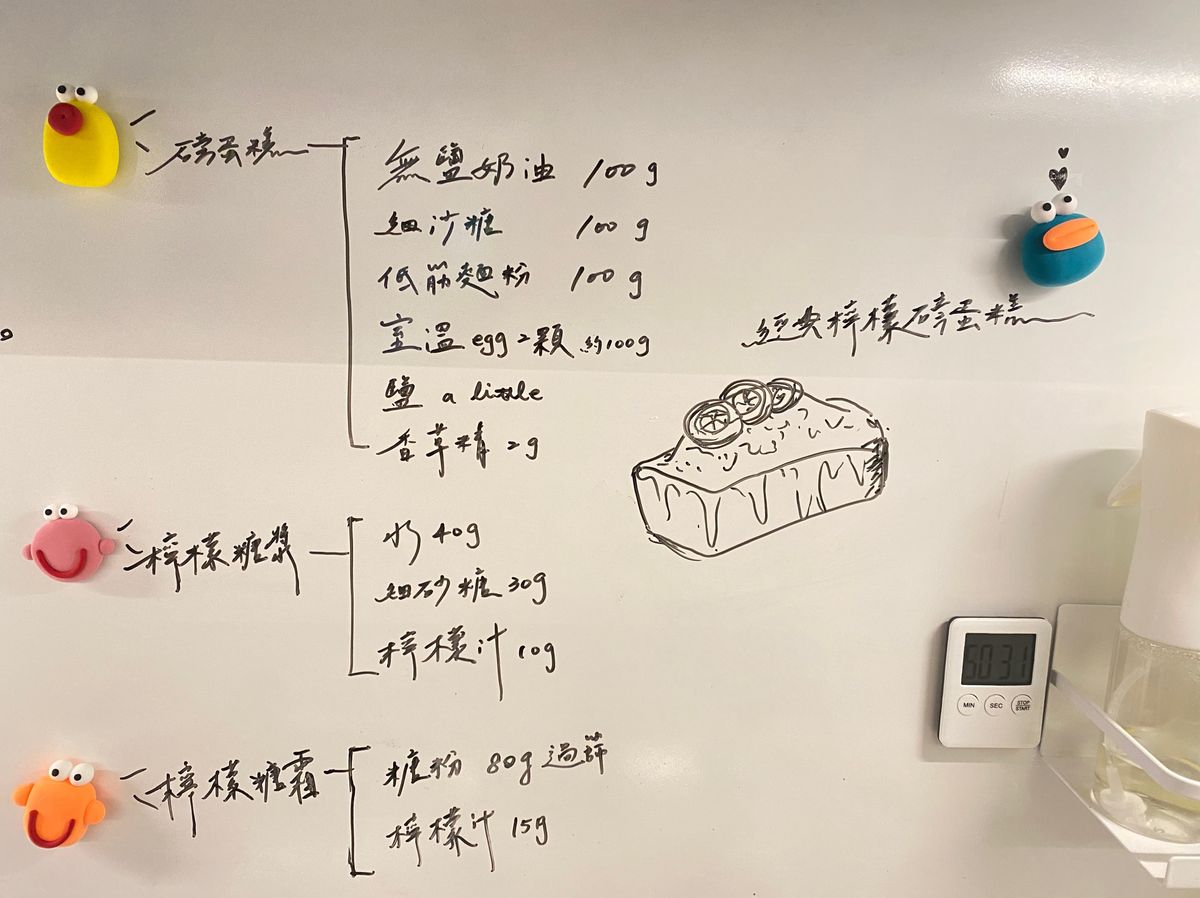 磅蛋糕
無鹽奶油 100g
細沙糖 100g
低筋麵粉 100g
室溫egg2顆 約100g
鹽 a little
香草精 2g
經典檸檬磅蛋糕
檸檬糖漿
水 40g
細砂糖 30g
檸檬汁 10g
檸檬糖霜
糖粉 80g 過篩
檸檬汁 15g
MIN
SEC
STOP
START